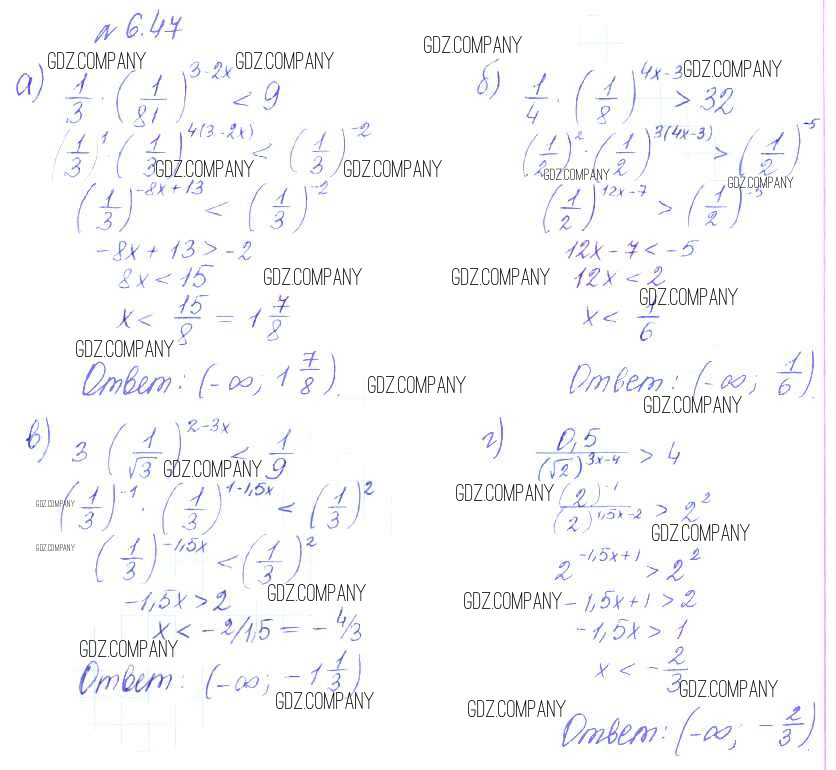 № 6.47
GDZ.COMPANY GDZ.COMPANY
а) 1/3 · (1/81)^(3-2x) < 9
(1/3)^1 · (1/3)^(4(3-2x)) < (1/3)^(-2)
GDZ.COMPANY GDZ.COMPANY
(1/3)^(-8x+13) < (1/3)^(-2)
-8x + 13 > -2
8x < 15
GDZ.COMPANY
x < 15/8 = 1 7/8
GDZ.COMPANY
Ответ: (-∞; 1 7/8).
GDZ.COMPANY
GDZ.COMPANY
GDZ.COMPANY
б) 1/4 · (1/8)^(4x-3) > 32
(1/2)^2 · (1/2)^(3(4x-3)) > (1/2)^(-5)
GDZ.COMPANY GDZ.COMPANY
(1/2)^(12x-7) > (1/2)^(-5)
12x - 7 < -5
GDZ.COMPANY
12x < 2
GDZ.COMPANY
x < 1/6
Ответ: (-∞; 1/6)
GDZ.COMPANY
в) 3 (1/√3)^(2-3x) < 1/9
GDZ.COMPANY
GDZ.COMPANY
(1/3)^(-1) · (1/3)^(1-1,5x) < (1/3)^2
GDZ.COMPANY
(1/3)^(-1,5x) < (1/3)^2
-1,5x > 2
GDZ.COMPANY
x < -2/1,5 = -4/3
GDZ.COMPANY
Ответ: (-∞; -1 1/3)
GDZ.COMPANY
г) 0,5/(√2)^(3x-4) > 4
GDZ.COMPANY
(2)^(-1)/(2)^(1,5x-2) > 2^2
GDZ.COMPANY
2^(-1,5x+1) > 2^2
GDZ.COMPANY
-1,5x+1 > 2
-1,5x > 1
x < -2/3
GDZ.COMPANY
GDZ.COMPANY
Ответ: (-∞; -2/3).